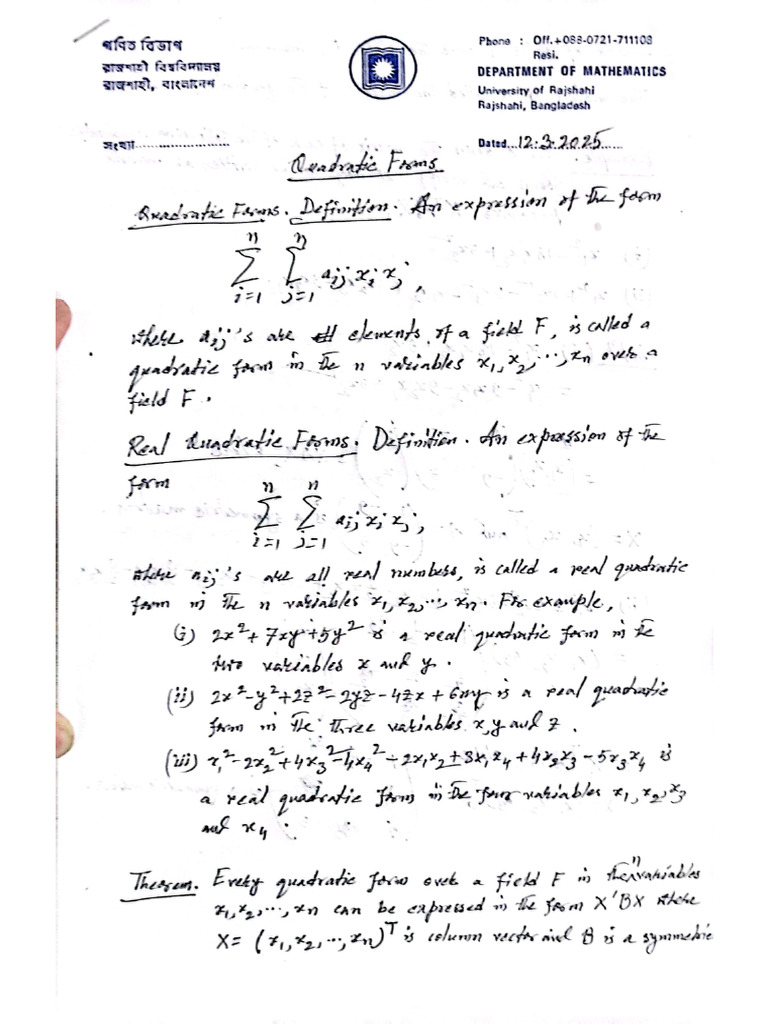 গণিত বিভাগ
রাজশাহী বিশ্ববিদ্যালয়
রাজশাহী, বাংলাদেশ
Phone : Off.+088-0721-711108
Resi.
DEPARTMENT OF MATHEMATICS
University of Rajshahi
Rajshahi, Bangladesh
সংখ্যা........................
Dated...12.3.2025......
Quadratic Forms
Quadratic Forms. Definition. An expression of the form
n n
∑ ∑ aij xi xj,
i=1 j=1
where aij's are elements of a field F, is called a
quadratic form in the n variables x1, x2, ..., xn over a
field F.
Real Quadratic Forms. Definition. An expression of the
form
n n
∑ ∑ aij xi xj,
i=1 j=1
where aij's are all real numbers, is called a real quadratic
form in the n variables x1, x2, ..., xn. For example,
(i) 2x²+7xy+5y² is a real quadratic form in the
two variables x and y.
(ii) 2x²-y²+2z²-2yz-4zx+6xy is a real quadratic
form in the three variables x, y and z.
(iii) x1²-2x2²+4x3²-4x4²-2x1x2+3x1x4+4x2x3-5x3x4 is
a real quadratic form in the four variables x1, x2, x3
and x4.
Theorem. Every quadratic form over a field F in the n variables
x1, x2, ..., xn can be expressed in the form X'BX where
X= (x1, x2, ..., xn)ᵀ is column vector and B is a symmetric